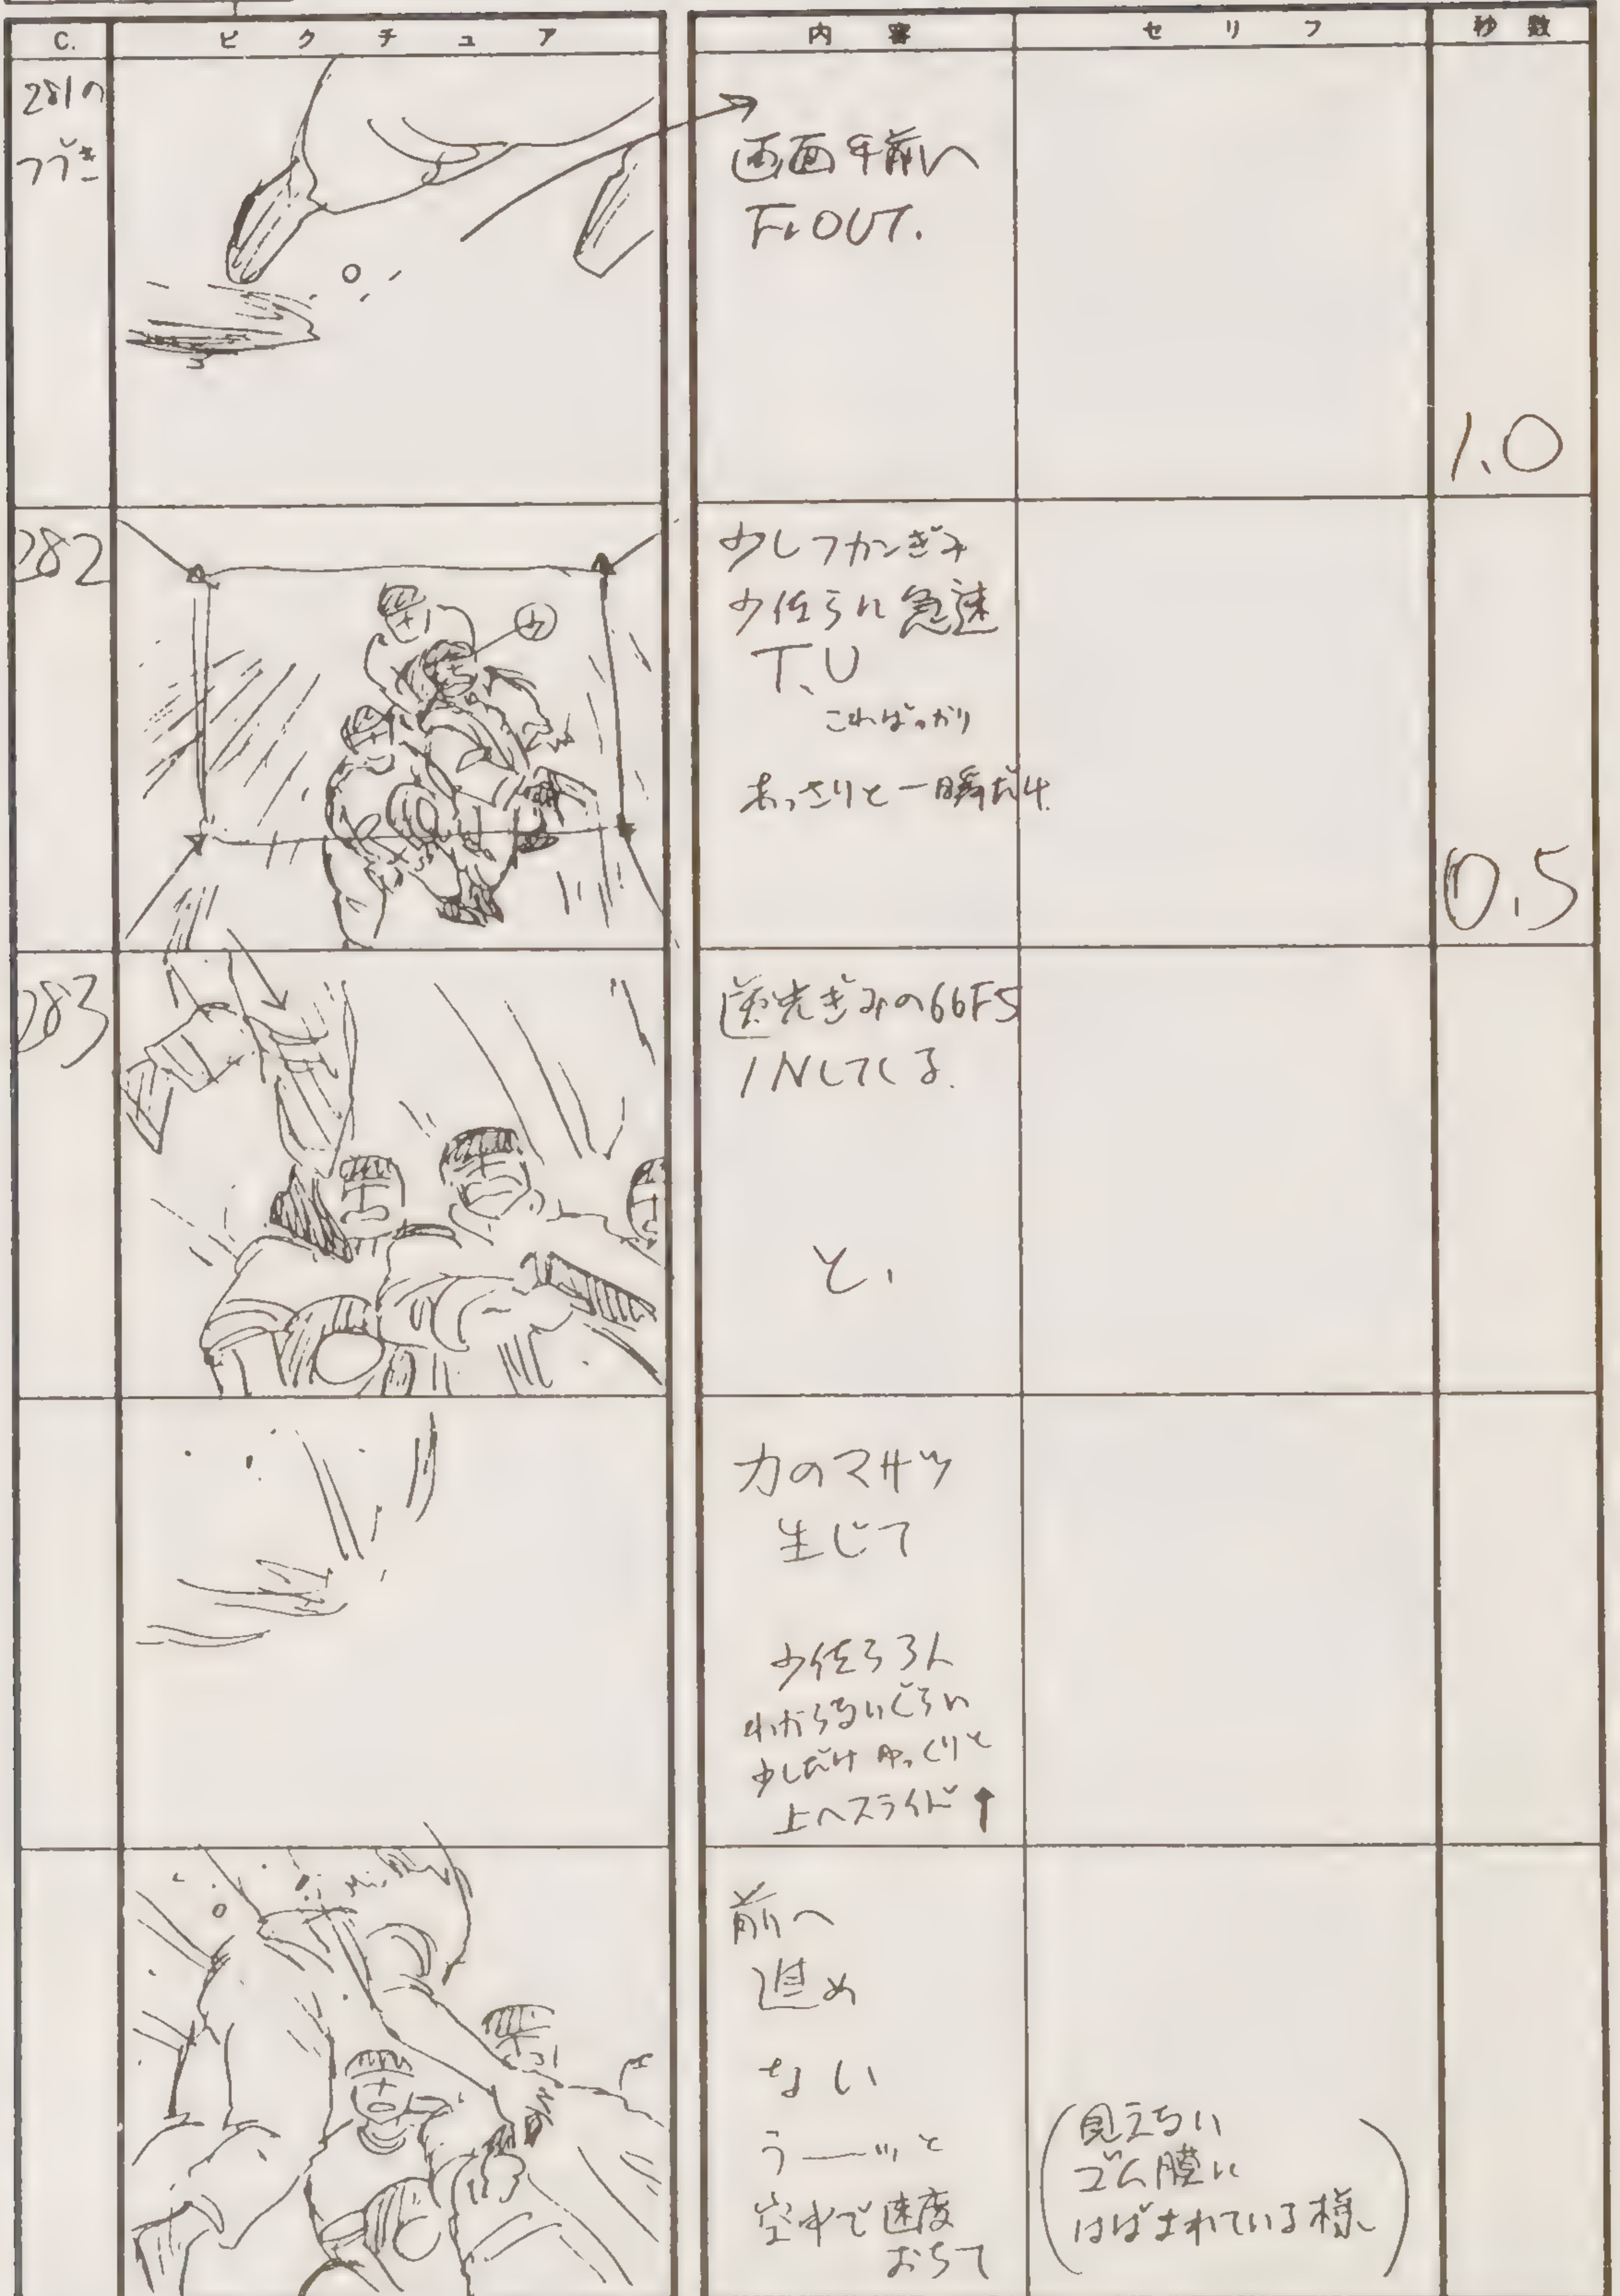 C.
ピクチュア
内容
セリフ
秒数
281の
つづき
画面手前へ
Fr OUT.
1.0
282
少しフカンぎみ
少佐らに急速
T.U
こればっかり
あっさりと一瞬だけ
カ
0.5
283
逆光ぎみの66F5
INしてくる.
と、
力のマサツ
生じて
少佐ら3人
わからないぐらい
少しだけゆっくりと
上へスライド↑
前へ
進め
ない
うーッと
空中で速度
おちて
(見えない
ゴム膜に
はばまれている様)